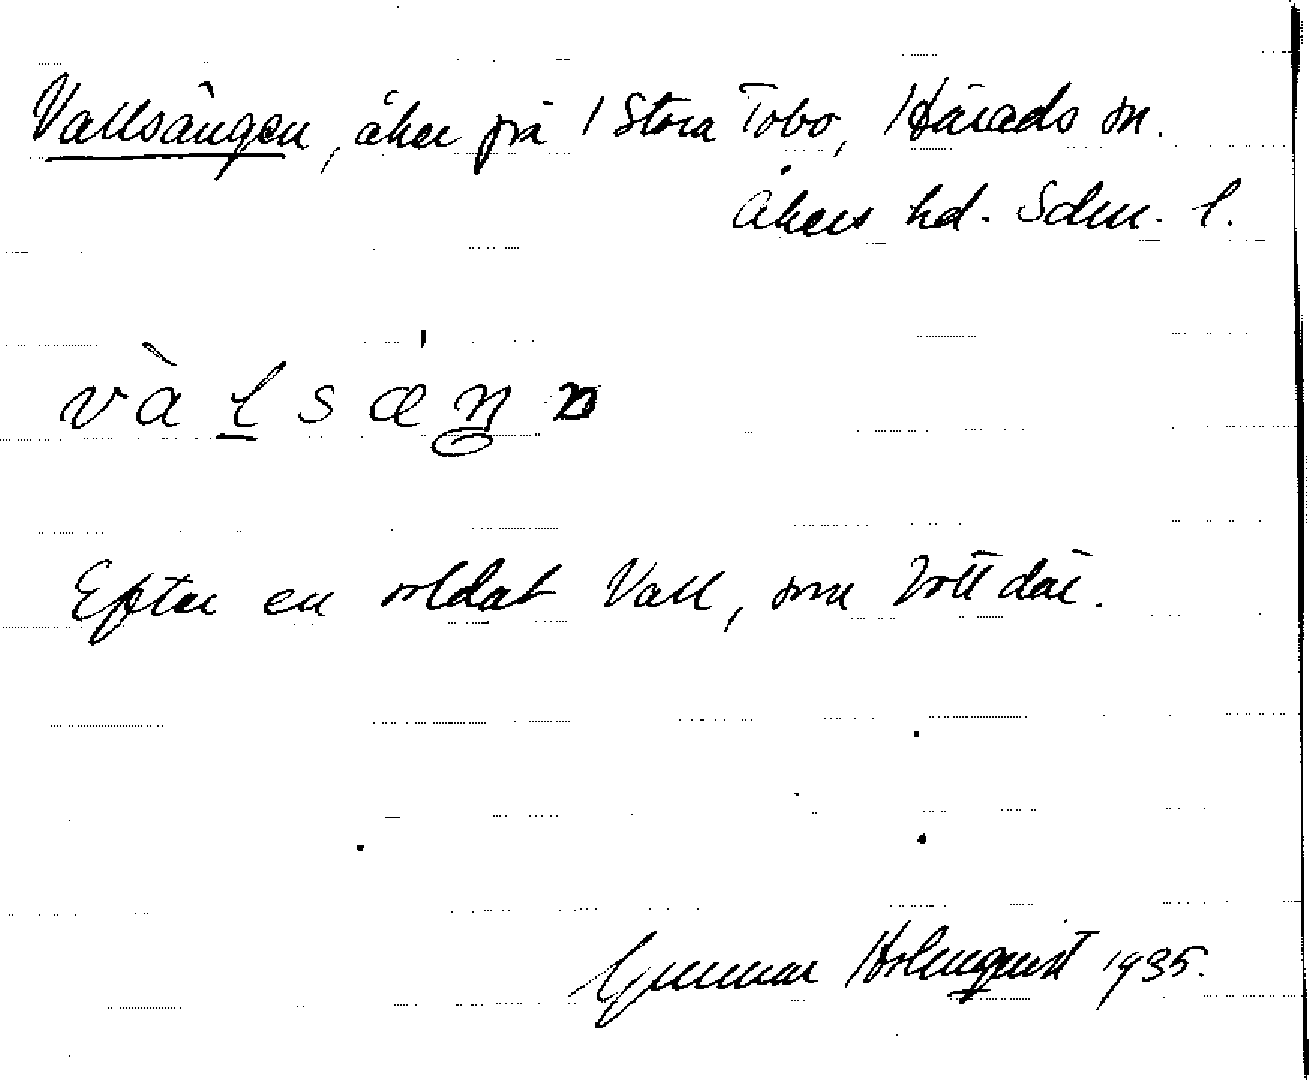 Vallsängen, åker på 1 Stora Tobo, Härads sn.
Åkers hd. Sdm. l.
vàl̲sæ̀ŋn
Efter en soldat Vall, som bott där.
Gunnar Holmquist 1935.